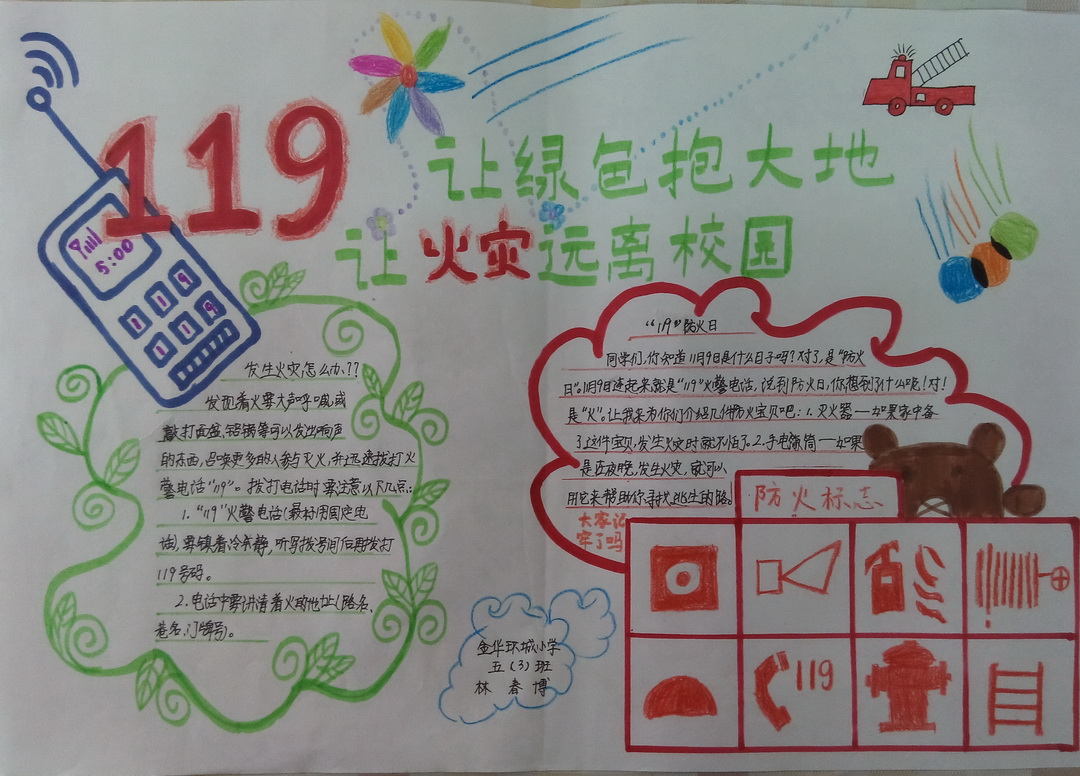 119
让绿色抱大地
让火灾远离校园
5:00
0 1 9
1 1 9
发生火灾怎么办??
发现着火要大声呼喊,或
敲打面盆,铝锅等可以发出响声
的东西,召唤更多的人参与灭火,并迅速拨打火
警电话"119"。拨打电话时要注意以下几点:
1."119"火警电话(最好用固定电
话),要镇着冷不静,听号拨号间后再拨打
119号码。
2.电话中要讲清着火动地址(路名、
巷名、门牌号)。
"119"防火日
同学们,你知道11月9日是什么日子吗?对了,是"防火
日"。11月9日连起来就是"119"火警电话,说到防火日,你想到了什么呢!对!
是"火"。让我来为你们介绍几件防火宝贝吧:1.灭火器——如果家中备
了这件宝贝,发生火灾时就不怕了。2.手电筒——如果
是在夜晚,发生火灾,就可以
用它来帮助你寻找逃生的路。
大家记
牢了吗
防火标志
119
金华环城小学
五(3)班
林春博